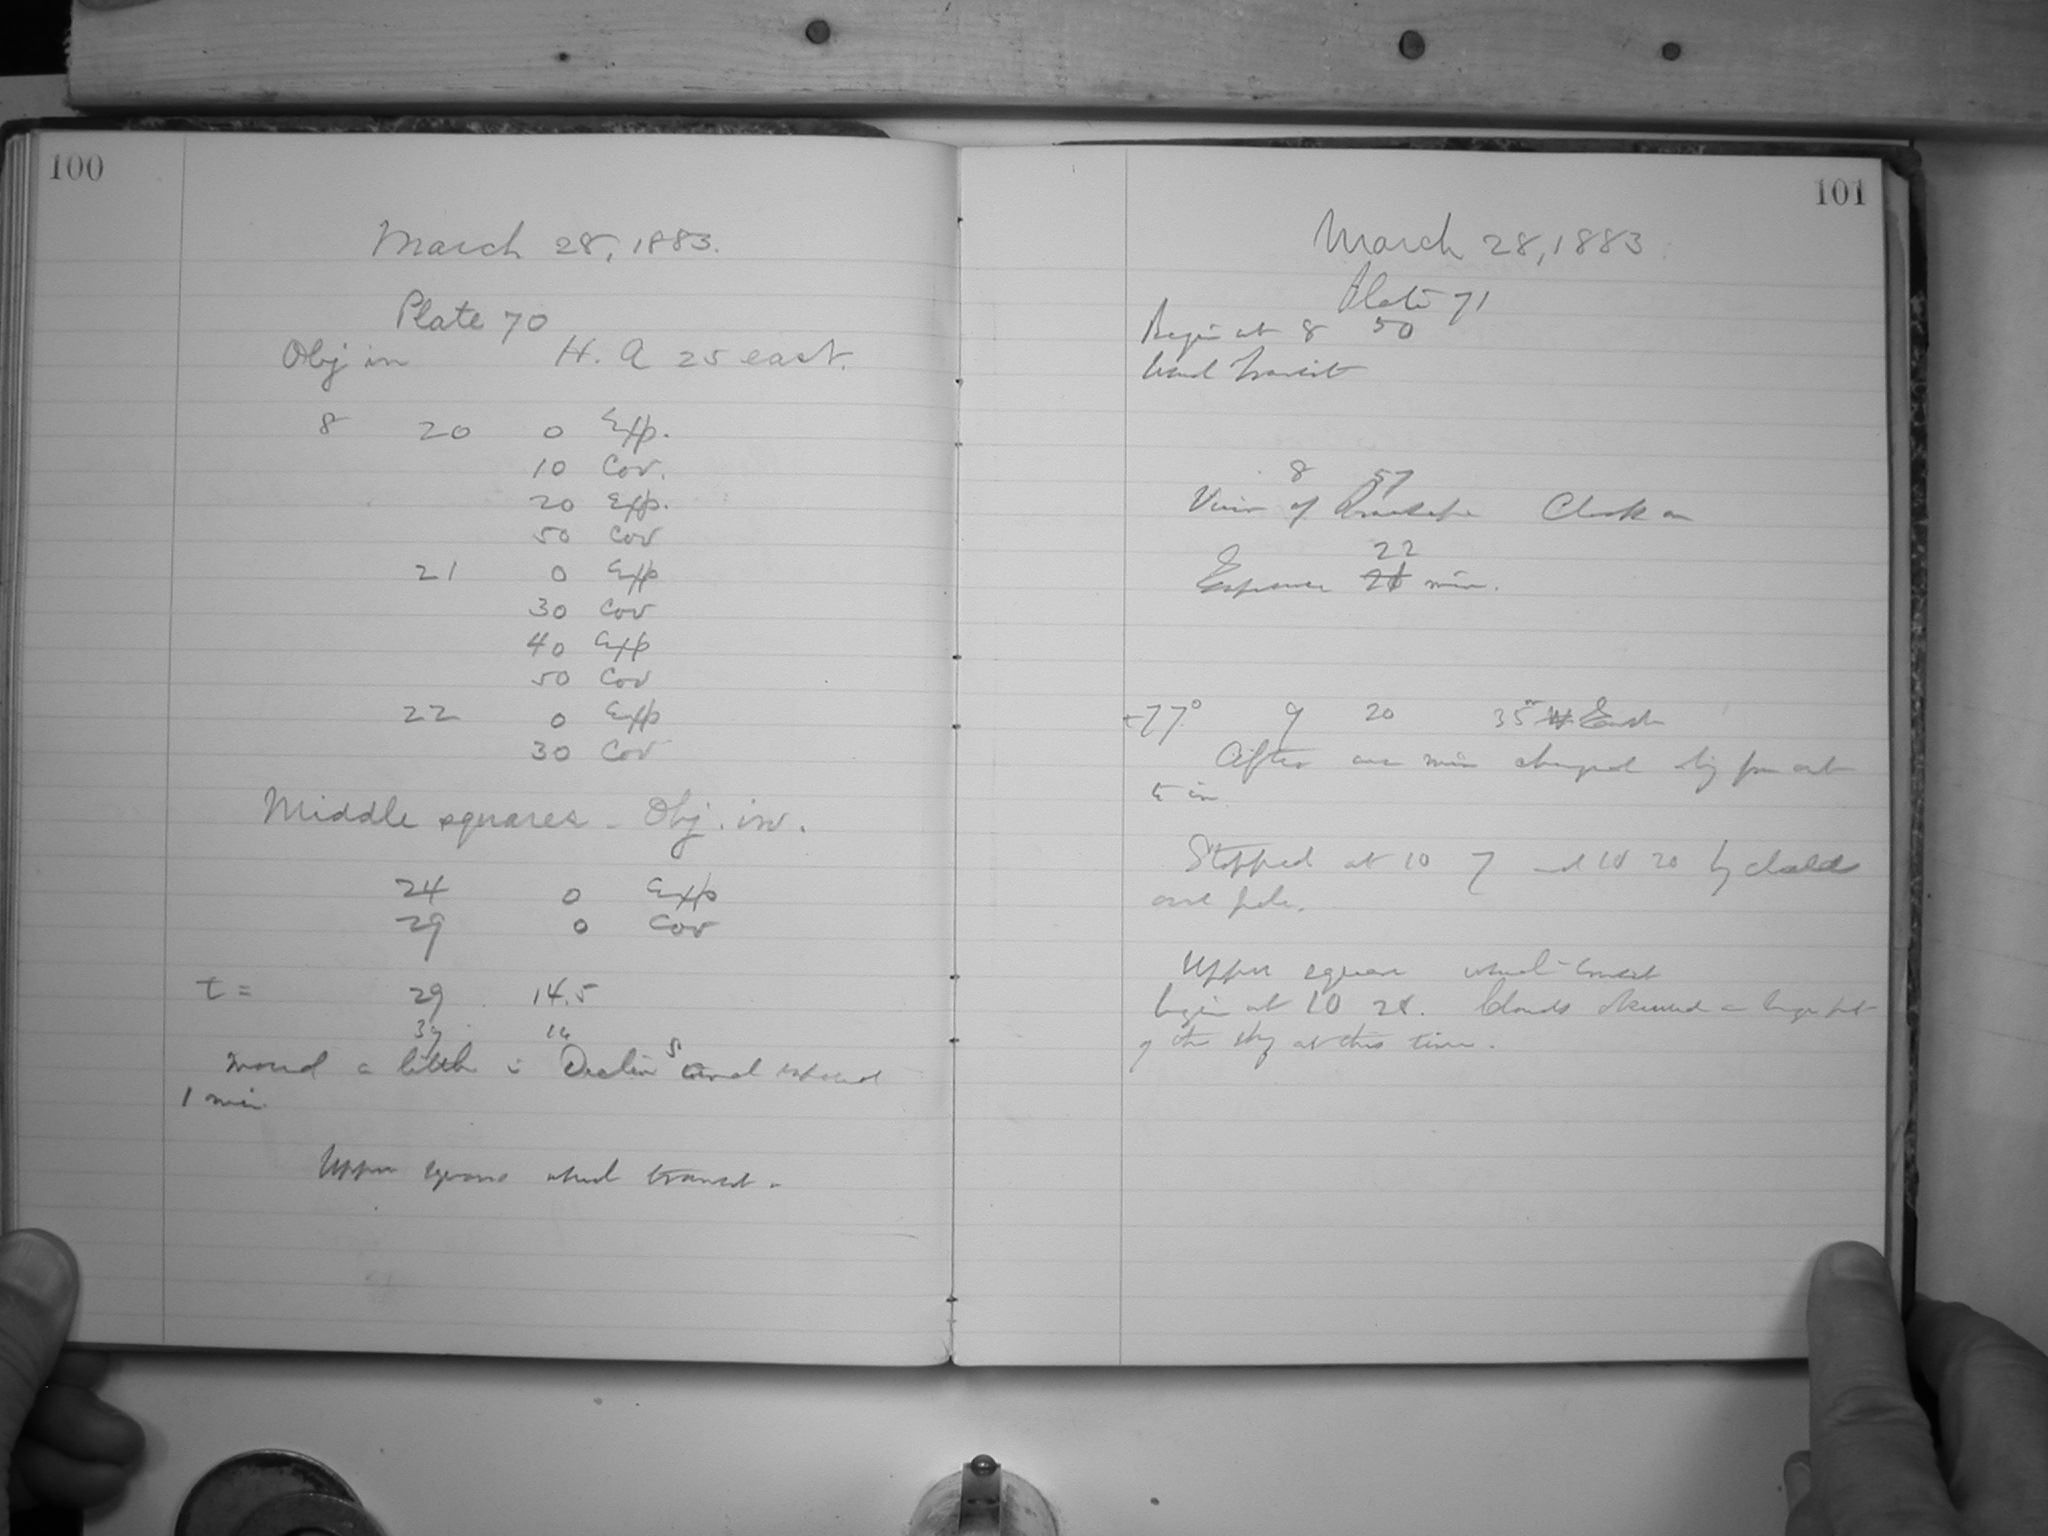 100
March 28, 1883.
Plate 70
Obj in H. A 25 east.
8 20 0 Exp.
10 Cov.
20 Exp.
50 Cov
21 0 Exp
30 Cov
40 Exp
50 Cov
22 0 Exp
30 Cov
Middle squares - Obj. in.
24 0 Exp
29 0 Cov
t = 29 14.5
39 14
moved a little in Declin and exposed
1 min
Upper squares usual transit.
101
March 28, 1883
Plate 71
Begin at 8 50
Usual transit
8 57
View of Clock on
22
Exposure min.
+77° 9 20 35m East
After one min changed obj from out
to in
Stopped at 10 7 and 10 20 by clouds
over pole.
Upper square usual transit
begin at 10 28. Clouds obscured a large part
of the sky at this time.